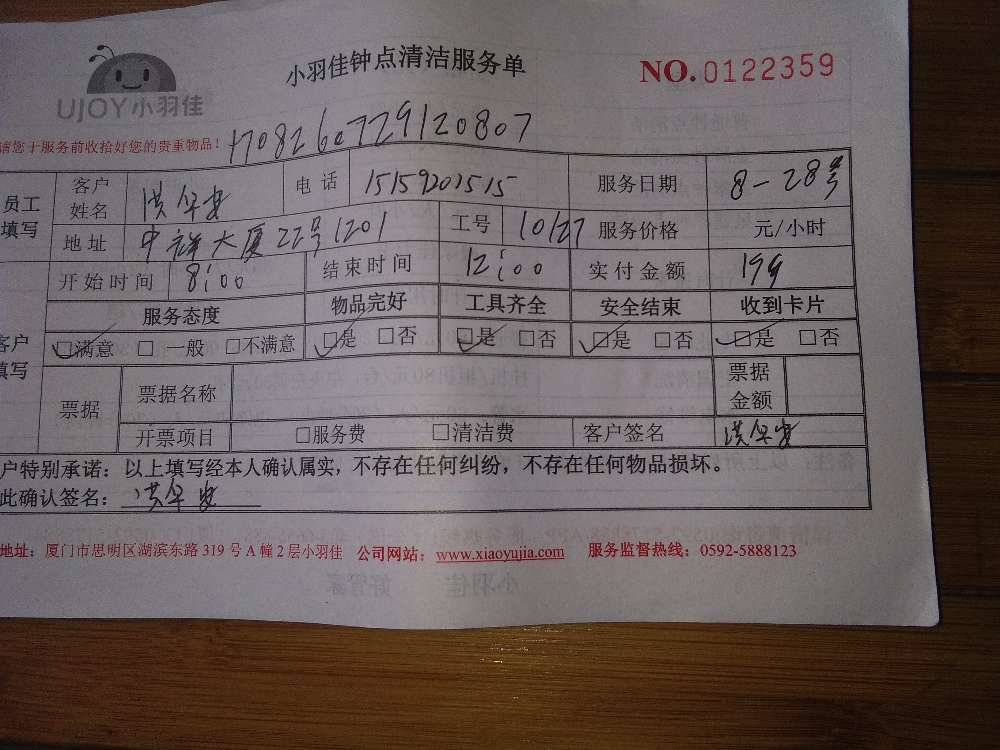 小羽佳钟点清洁服务单
NO.0122359
UJOY小羽佳
请您于服务前收拾好您的贵重物品！
17082607729120807
员工填写 客户姓名 洪华安 电话 15159207515 服务日期 8-28号
地址 中祥大厦22号1201 工号 10127 服务价格 元/小时
开始时间 8:00 结束时间 12:00 实付金额 199
服务态度 物品完好 工具齐全 安全结束 收到卡片
客户填写 ☑满意 □一般 □不满意 ☑是 □否 ☑是 □否 ☑是 □否 ☑是 □否
票据 票据名称 票据金额
开票项目 □服务费 □清洁费 客户签名 洪华安
户特别承诺：以上填写经本人确认属实，不存在任何纠纷，不存在任何物品损坏。
此确认签名：洪华安
地址：厦门市思明区湖滨东路 319 号 A 幢 2 层小羽佳 公司网站：www.xiaoyujia.com 服务监督热线：0592-5888123